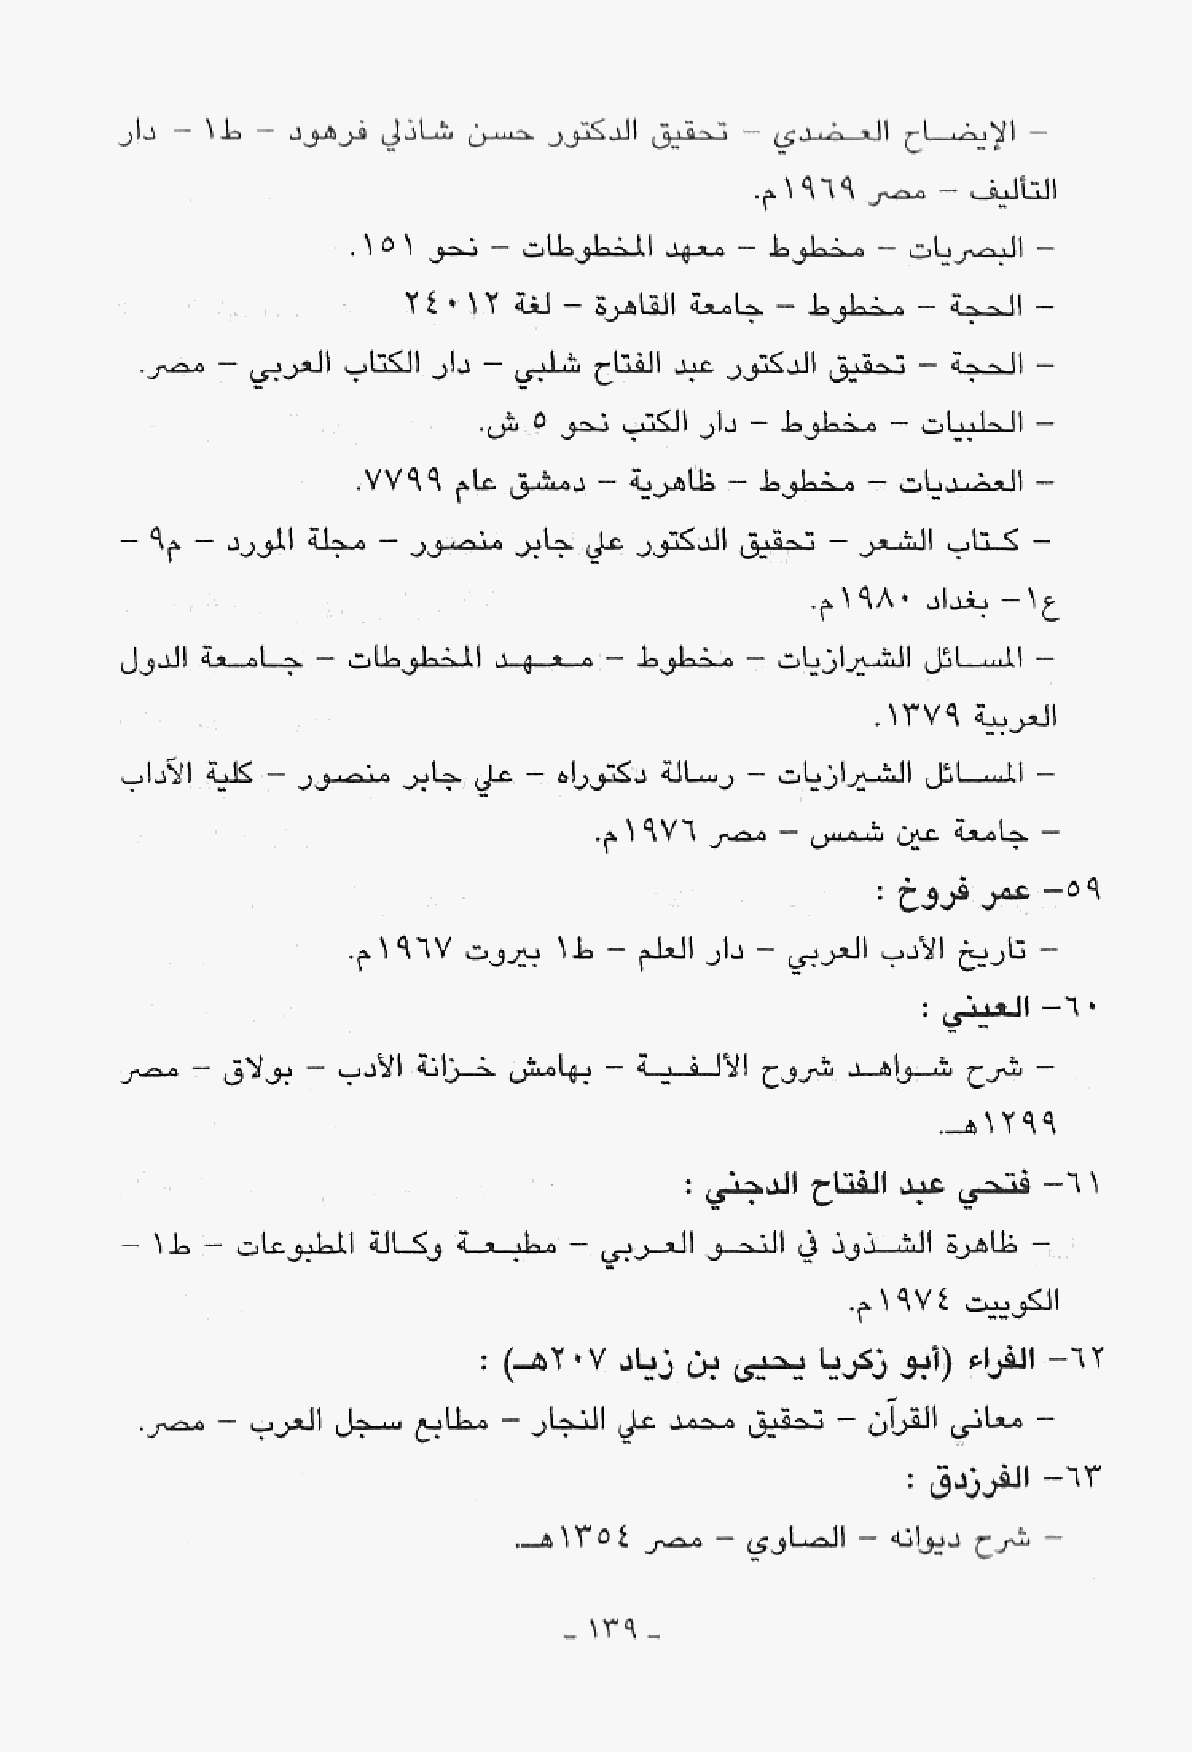 – الإيضاح العضدي – تحقيق الدكتور حسن شاذلي فرهود – ط١ – دار
التأليف – مصر ١٩٦٩م.
– البصريات – مخطوط – معهد المخطوطات – نحو ١٥١.
– الحجة – مخطوط – جامعة القاهرة – لغة ٢٤٠١٢
– الحجة – تحقيق الدكتور عبد الفتاح شلبي – دار الكتاب العربي – مصر.
– الحلبيات – مخطوط – دار الكتب نحو ٥ ش.
– العضديات – مخطوط – ظاهرية – دمشق عام ٧٧٩٩.
– كتاب الشعر – تحقيق الدكتور علي جابر منصور – مجلة المورد – م٩ –
ع١– بغداد ١٩٨٠م.
– المسائل الشيرازيات – مخطوط – معهد المخطوطات – جامعة الدول
العربية ١٣٧٩.
– المسائل الشيرازيات – رسالة دكتوراه – علي جابر منصور – كلية الآداب
– جامعة عين شمس – مصر ١٩٧٦م.
٥٩– عمر فروخ :
– تاريخ الأدب العربي – دار العلم – ط١ بيروت ١٩٦٧م.
٦٠– العيني :
– شرح شواهد شروح الألفية – بهامش خزانة الأدب – بولاق – مصر
١٢٩٩هـ.
٦١– فتحي عبد الفتاح الدجني :
– ظاهرة الشذوذ في النحو العربي – مطبعة وكالة المطبوعات – ط١ –
الكوييت ١٩٧٤م.
٦٢– الفراء (أبو زكريا يحيى بن زياد ٢٠٧هـ) :
– معاني القرآن – تحقيق محمد علي النجار – مطابع سجل العرب – مصر.
٦٣– الفرزدق :
– شرح ديوانه – الصاوي – مصر ١٣٥٤هـ.
– ١٣٩ –